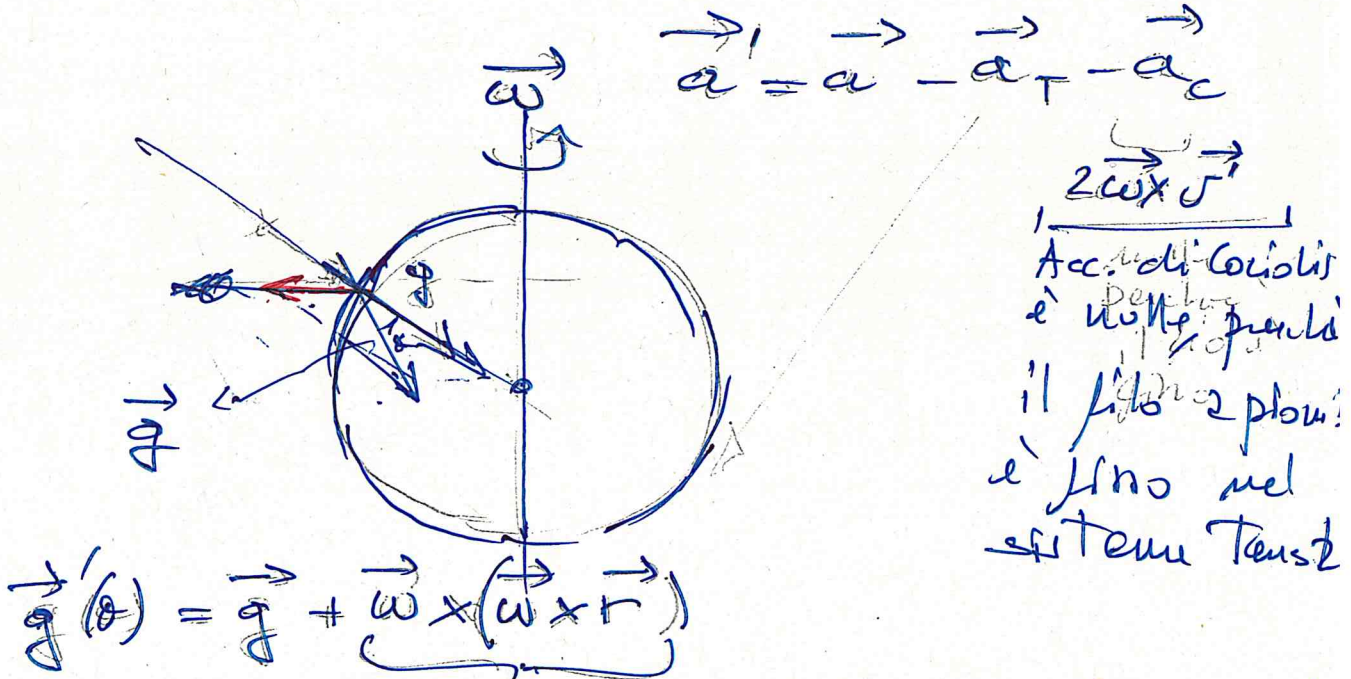 a⃗' = a⃗ - a⃗_T - a⃗_c
ω⃗
2ω⃗ × v⃗'
Acc. di Coriolis
è nulla perché
il filo a piom
è fisso nel
sistema
g
g⃗
g⃗'(θ) = g⃗ + ω⃗ × (ω⃗ × r⃗)